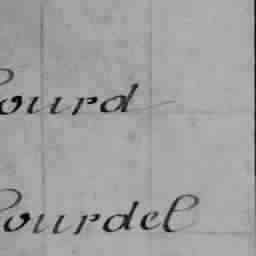 ourd
ourdel